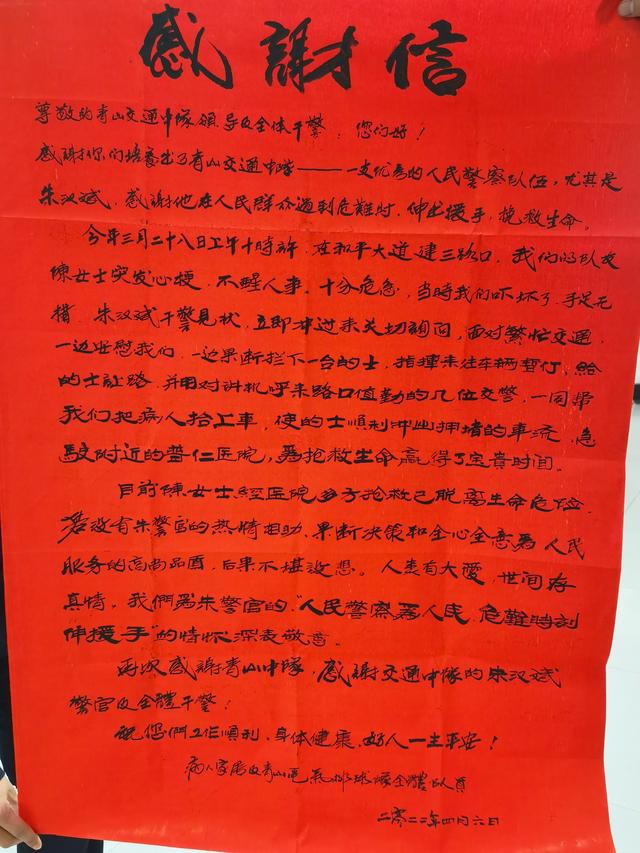 感謝信
尊敬的青山交通中隊領导及全体干警：您们好！
感謝你们培养出了青山交通中隊——一支优秀的人民警察队伍，尤其是
朱汉斌，感謝他在人民群众遇到危難时，伸出援手，挽救生命。
今年三月二十八日上午十時許，在和平大道建三路口，我们的队友
陳女士突发心梗，不醒人事，十分危急，当時我们吓坏了，手足无
措，朱汉斌干警見状，立即冲过来关切詢问，面对繁忙交通，
一边安慰我们，一边果断拦下一台的士，指揮来往车辆暂停，給
的士让路，并用对讲机呼来路口值勤的几位交警，一同帮
我们把病人抬上車，使的士順利冲出拥堵的車流，急
駛附近的普仁医院，為抢救生命贏得了宝貴时间。
目前陳女士經医院多方抢救已脱离生命危险，
若没有朱警官的热情相助、果断决策和全心全意為人民
服务的高尚品質，后果不堪設想。人類有大愛，世间存
真情，我們為朱警官的“人民警察為人民，危難時刻
伸援手”的情怀深表敬意。
再次感謝青山中隊，感謝交通中隊的朱汉斌
警官及全體干警！
祝您們工作順利，身体健康，好人一生平安！
病人家属及青山區氣排球隊全體队員
二零二二年四月六日